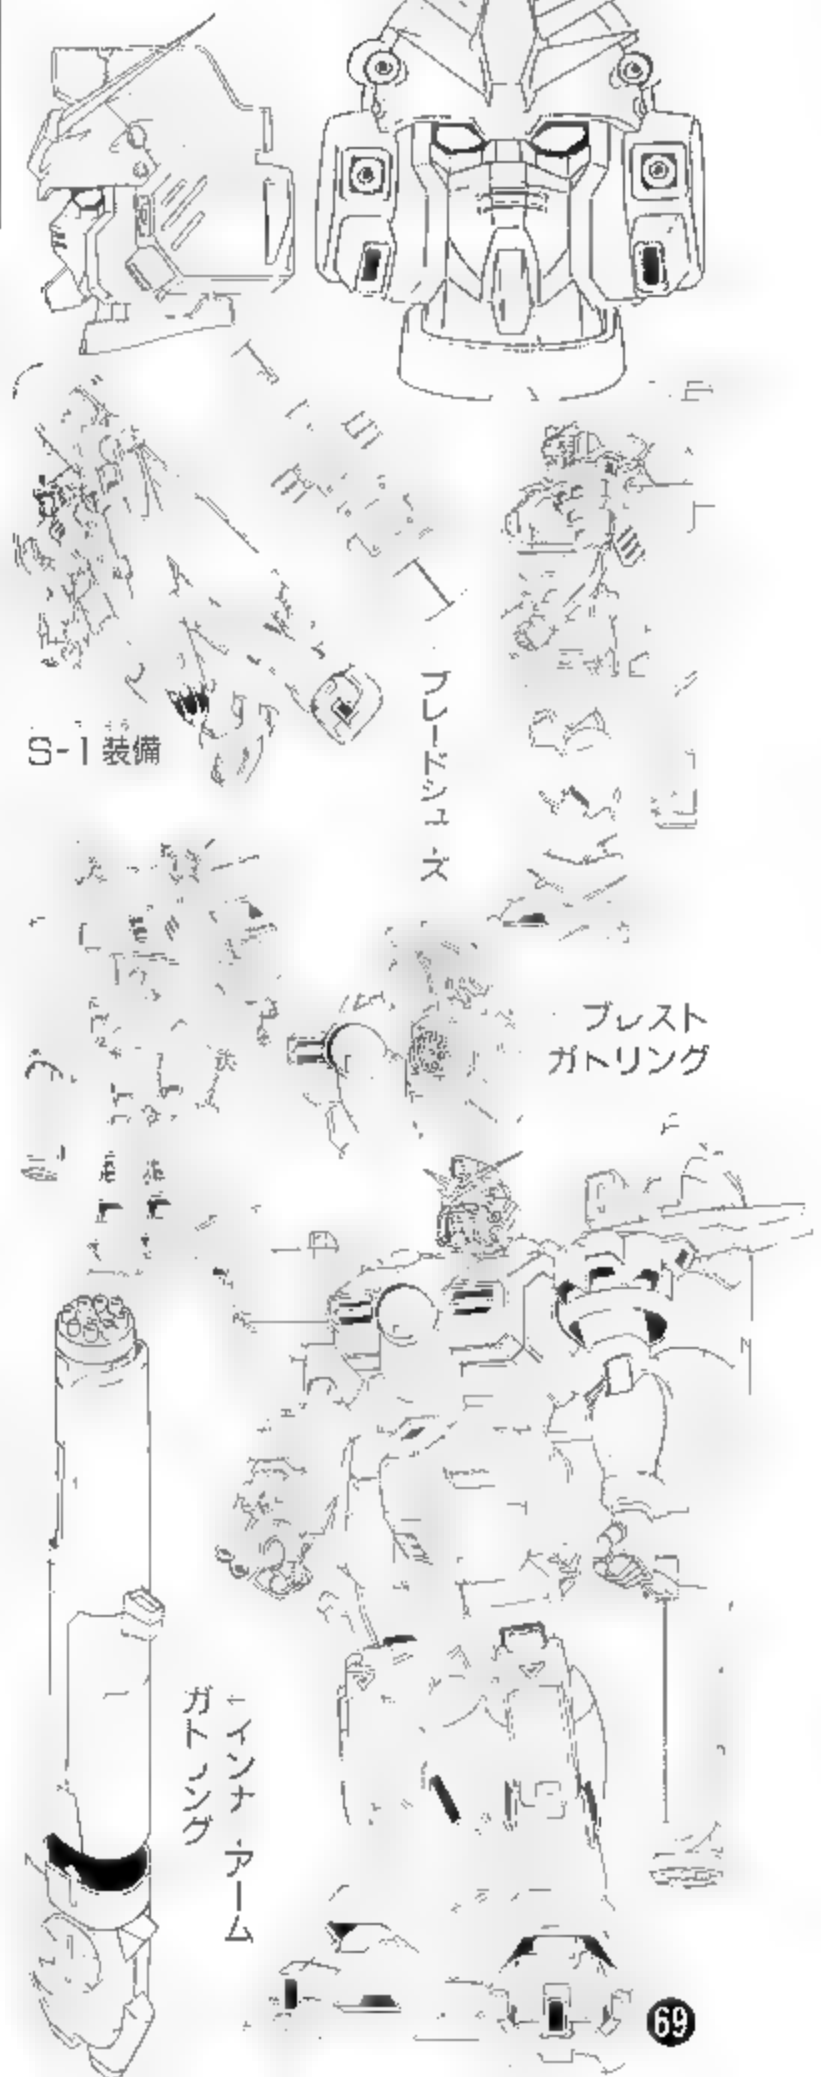 S-1装備
ブレードシューズ
ブレスト
ガトリング
インナーアーム
ガトリング
69